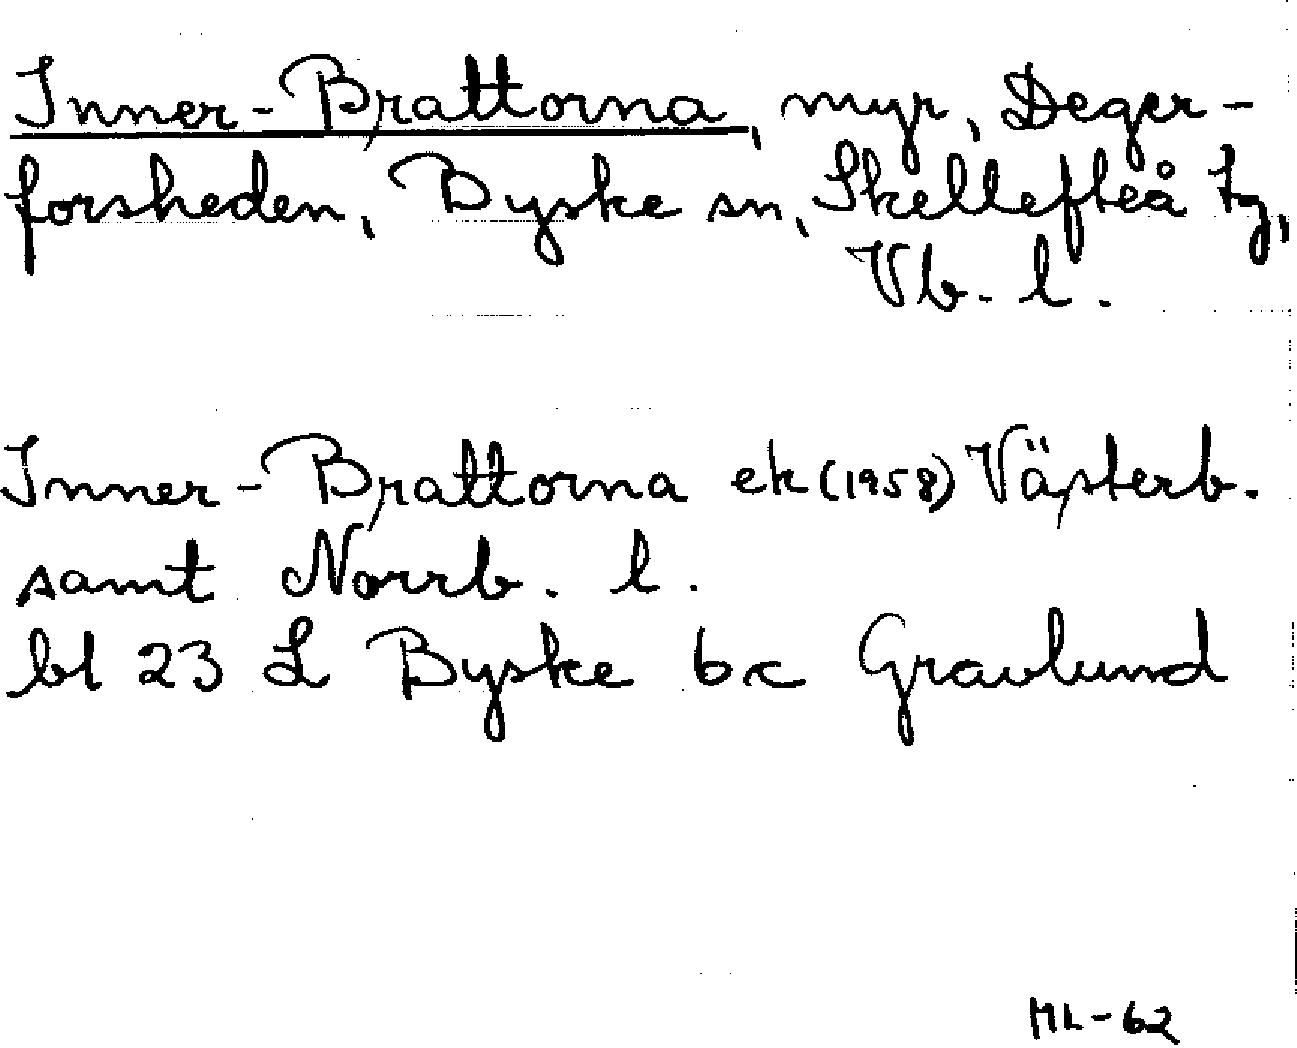 Inner-Brattorna, myr, Deger-
forsheden, Byske sn, Skellefteå tg,
Vb. l.
Inner-Brattorna ek (1958) Västerb.
samt Norrb. l.
bl 23 L Byske bc Gravlund
ML-62